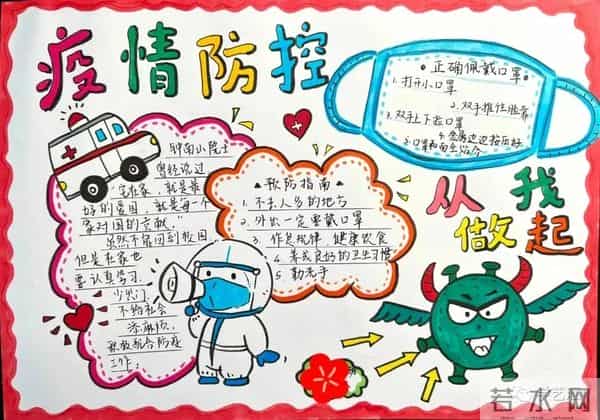 疫情防控
钟南山院士
曾经说过
"宅在家，就是最
好的爱国，就是每个
家对国的贡献."
虽然不能回到校园
但是在家也
要认真学习.
少出门
不给社会
添麻烦.
积极配合防疫
工作.
预防指南
1. 不去人多的地方
2. 外出一定要戴口罩
3. 作息规律 健康饮食
4. 养成良好的卫生习惯
5. 勤洗手
正确佩戴口罩
1. 打开小口罩
2. 双手推住脸靠
3. 双手上下拉口罩
4. 金属边迫按后好
从我
做起
若水网